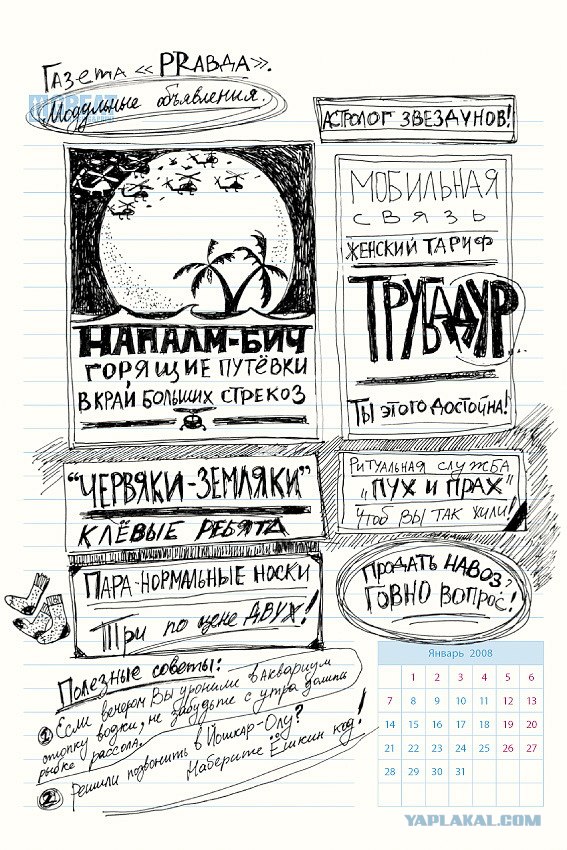 Газета «PRAВДА».
Модульные объявления.
АСТРОЛОГ ЗВЕЗДУНОВ!
НАПАЛМ-БИЧ
ГОРЯЩИЕ ПУТЁВКИ
В КРАЙ БОЛЬШИХ СТРЕКОЗ
МОБИЛЬНАЯ
СВЯЗЬ
ЖЕНСКИЙ ТАРИФ
ТРУБАДУР...
ТЫ ЭТОГО ДОСТОЙНА!
"ЧЕРВЯКИ-ЗЕМЛЯКИ"
КЛЁВЫЕ РЕБЯТА
РИТУАЛЬНАЯ СЛУЖБА
„ПУХ И ПРАХ"
ЧТОБ ВЫ ТАК ЖИЛИ!
ПАРА-НОРМАЛЬНЫЕ НОСКИ
Три по цене ДВУХ!
ПРОДАТЬ НАВОЗ?
ГОВНО ВОПРОС!
Полезные советы:
1 Если вечером Вы уронили в аквариум
стопку водки, не забудьте с утра дать
рыбке рассола.
2 Решили позвонить в Йошкар-Олу?
Наберите Ёшкин код!
Январь 2008
1 2 3 4 5 6
7 8 9 10 11 12 13
14 15 16 17 18 19 20
21 22 23 24 25 26 27
28 29 30 31
YAPLAKAL.COM